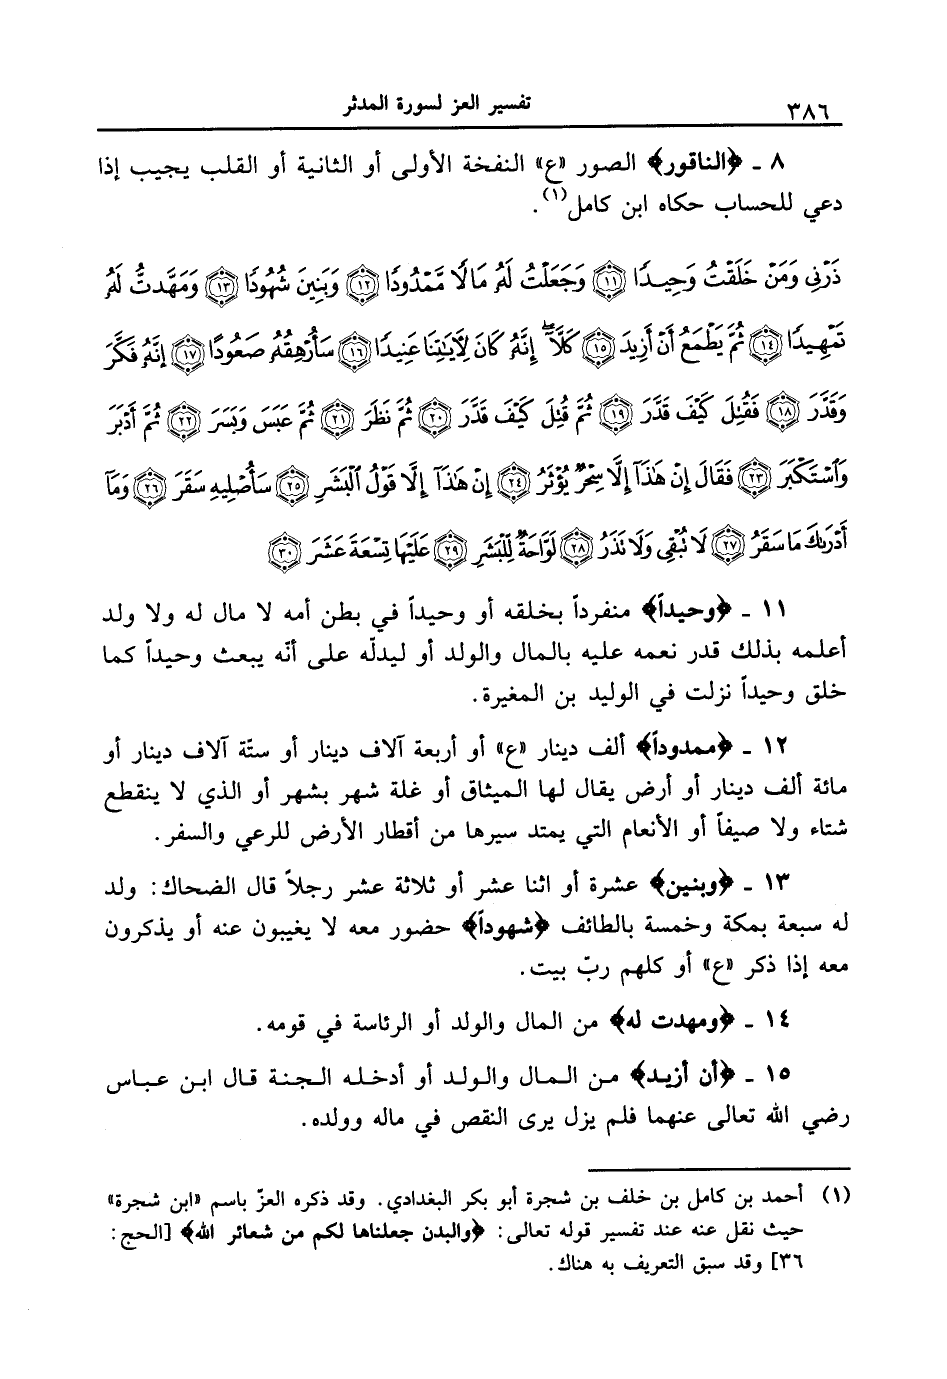 ٣٨٦ تفسير العز لسورة المدثر
٨ ـ ﴿الناقور﴾ الصور «ع» النفخة الأولى أو الثانية أو القلب يجيب إذا
دعي للحساب حكاه ابن كامل(١).
ذَرْنِي وَمَنْ خَلَقْتُ وَحِيدًا ١١ وَجَعَلْتُ لَهُ مَالًا مَّمْدُودًا ١٢ وَبَنِينَ شُهُودًا ١٣ وَمَهَّدتُّ لَهُ
تَمْهِيدًا ١٤ ثُمَّ يَطْمَعُ أَنْ أَزِيدَ ١٥ كَلَّا إِنَّهُ كَانَ لِآيَاتِنَا عَنِيدًا ١٦ سَأُرْهِقُهُ صَعُودًا ١٧ إِنَّهُ فَكَّرَ
وَقَدَّرَ ١٨ فَقُتِلَ كَيْفَ قَدَّرَ ١٩ ثُمَّ قُتِلَ كَيْفَ قَدَّرَ ٢٠ ثُمَّ نَظَرَ ٢١ ثُمَّ عَبَسَ وَبَسَرَ ٢٢ ثُمَّ أَدْبَرَ
وَاسْتَكْبَرَ ٢٣ فَقَالَ إِنْ هَٰذَا إِلَّا سِحْرٌ يُؤْثَرُ ٢٤ إِنْ هَٰذَا إِلَّا قَوْلُ الْبَشَرِ ٢٥ سَأُصْلِيهِ سَقَرَ ٢٦ وَمَا
أَدْرَىٰكَ مَا سَقَرُ ٢٧ لَا تُبْقِي وَلَا تَذَرُ ٢٨ لَوَّاحَةٌ لِّلْبَشَرِ ٢٩ عَلَيْهَا تِسْعَةَ عَشَرَ ٣٠
١١ ـ ﴿وحيداً﴾ منفرداً بخلقه أو وحيداً في بطن أمه لا مال له ولا ولد
أعلمه بذلك قدر نعمه عليه بالمال والولد أو ليدلّه على أنّه يبعث وحيداً كما
خلق وحيداً نزلت في الوليد بن المغيرة.
١٢ ـ ﴿ممدوداً﴾ ألف دينار «ع» أو أربعة آلاف دينار أو ستّة آلاف دينار أو
مائة ألف دينار أو أرض يقال لها الميثاق أو غلة شهر بشهر أو الذي لا ينقطع
شتاء ولا صيفاً أو الأنعام التي يمتد سيرها من أقطار الأرض للرعي والسفر.
١٣ ـ ﴿وبنين﴾ عشرة أو اثنا عشر أو ثلاثة عشر رجلاً قال الضحاك: ولد
له سبعة بمكة وخمسة بالطائف ﴿شهوداً﴾ حضور معه لا يغيبون عنه أو يذكرون
معه إذا ذكر «ع» أو كلهم ربّ بيت.
١٤ ـ ﴿ومهدت له﴾ من المال والولد أو الرئاسة في قومه.
١٥ ـ ﴿أن أزيد﴾ من المال والولد أو أدخله الجنة قال ابن عباس
رضي الله تعالى عنهما فلم يزل يرى النقص في ماله وولده.
(١) أحمد بن كامل بن خلف بن شجرة أبو بكر البغدادي. وقد ذكره العزّ باسم «ابن شجرة»
حيث نقل عنه عند تفسير قوله تعالى: ﴿والبدن جعلناها لكم من شعائر الله﴾ [الحج:
٣٦] وقد سبق التعريف به هناك.